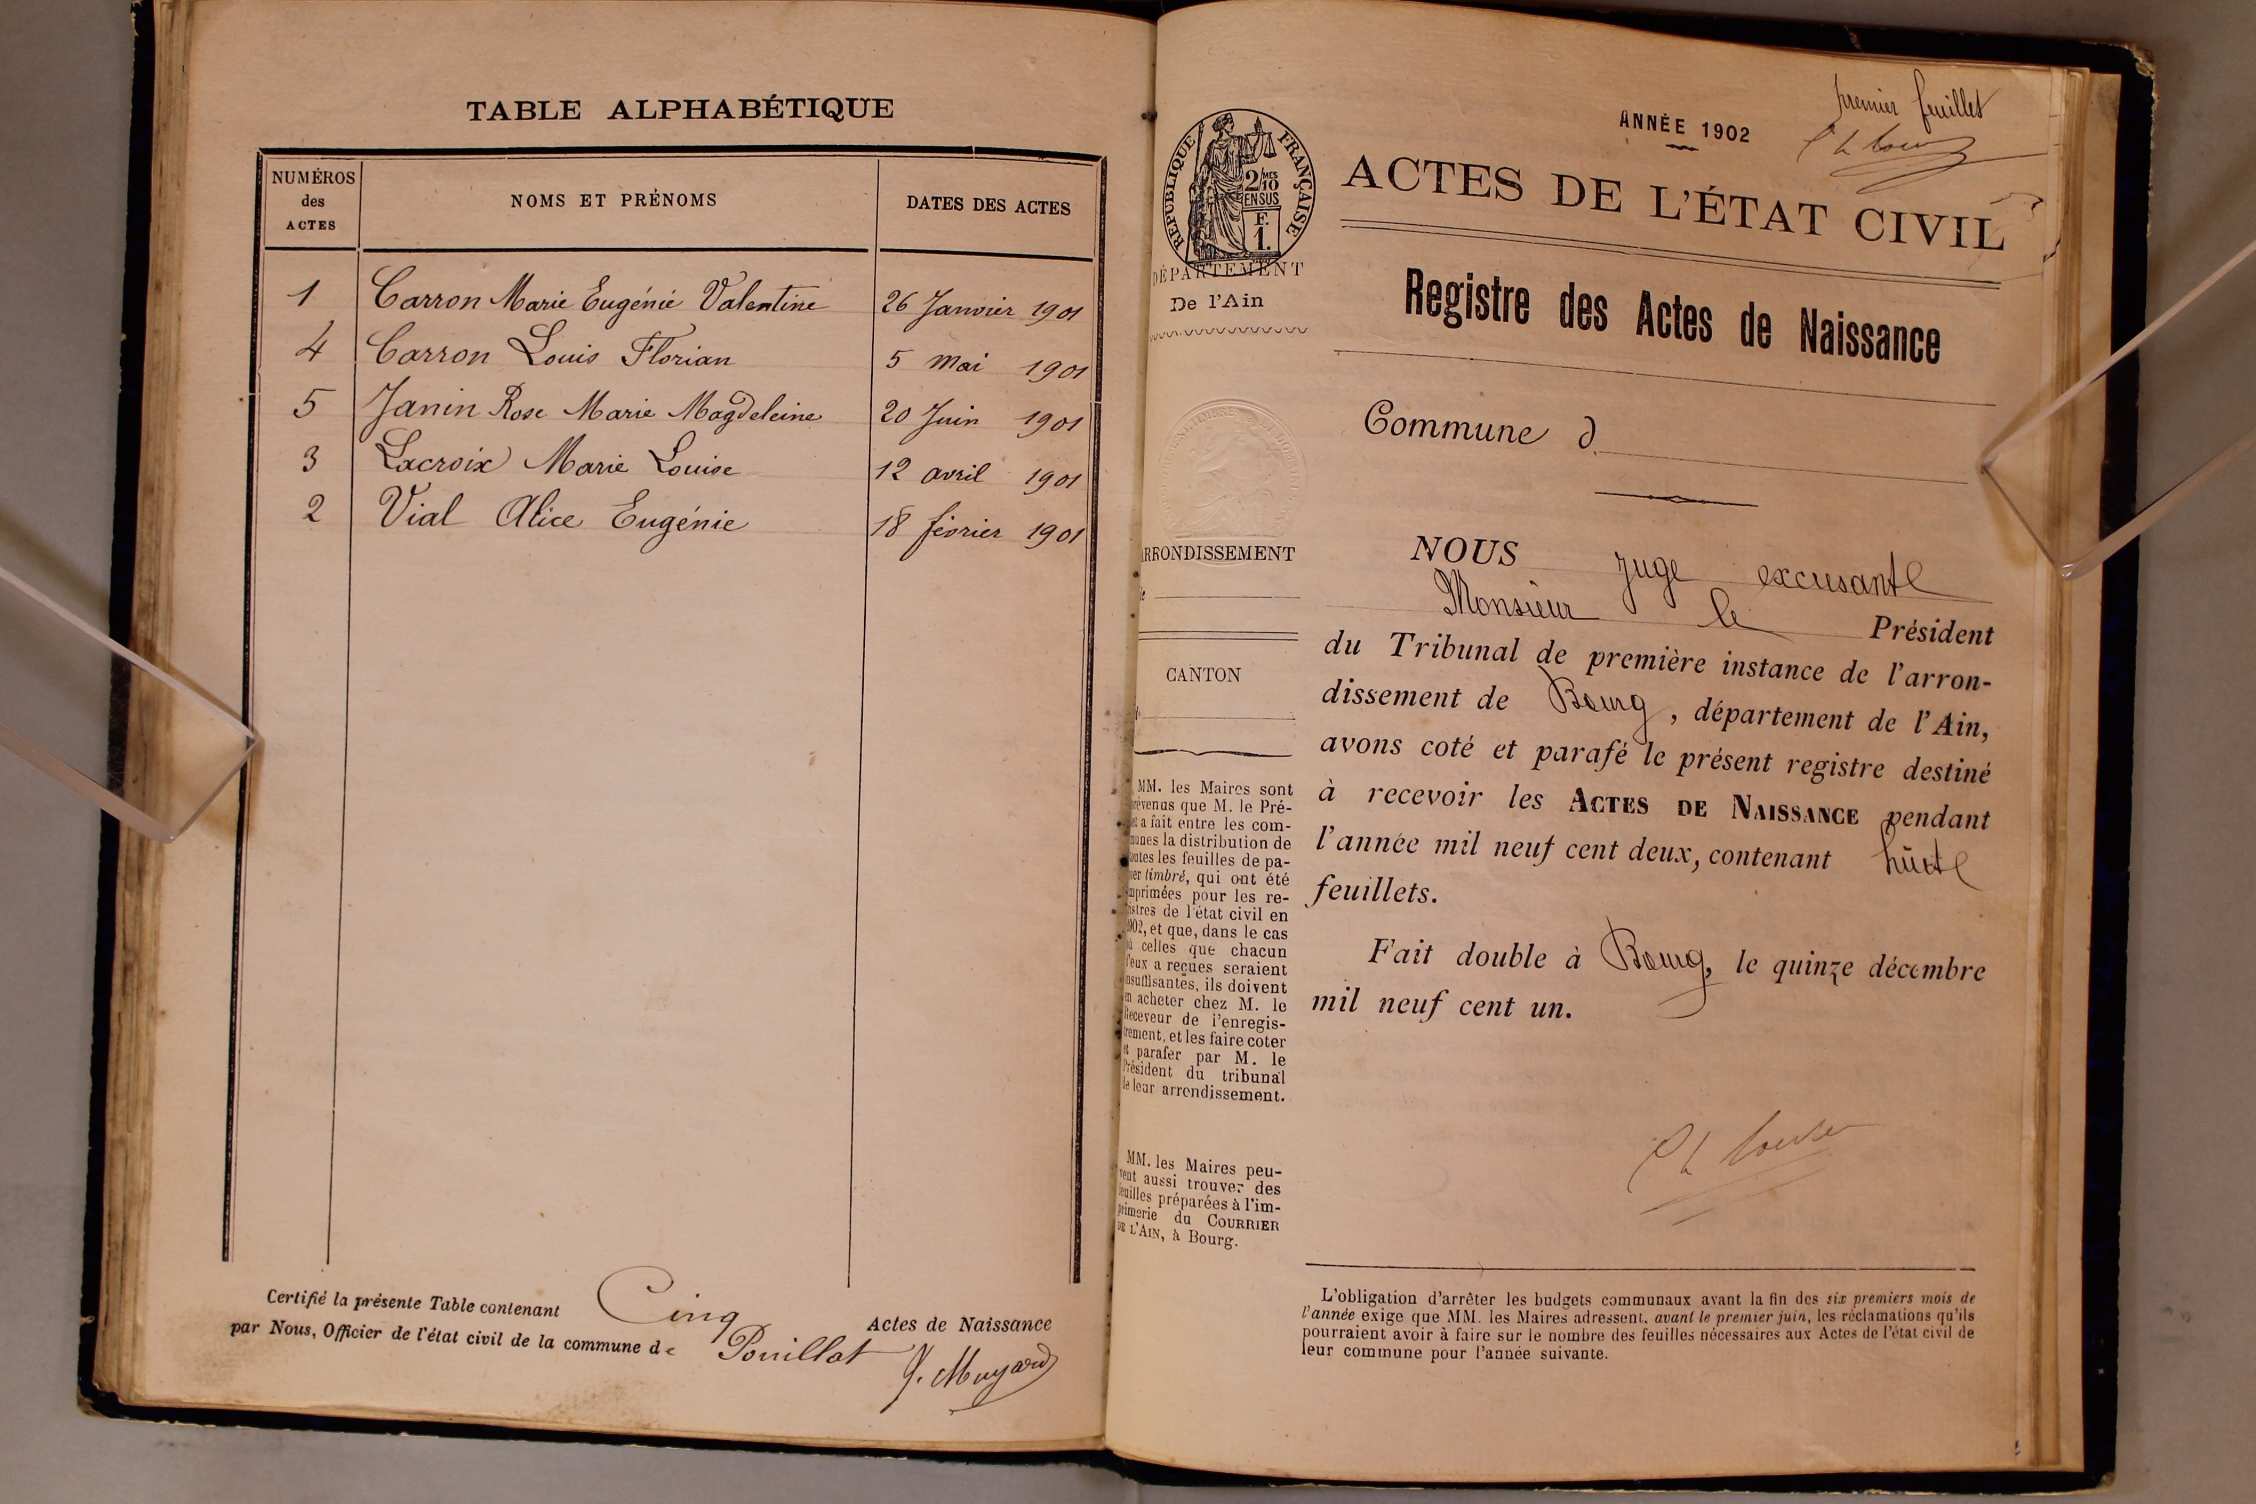 TABLE ALPHABÉTIQUE
NUMÉROS
des
ACTES
NOMS ET PRÉNOMS
DATES DES ACTES
1 Carron Marie Eugénie Valentine 26 Janvier 1901
4 Carron Louis Florian 5 Mai 1901
5 Janin Rose Marie Magdeleine 20 Juin 1901
3 Lacroix Marie Louise 12 avril 1901
2 Vial Alice Eugénie 18 février 1901
Certifié la présente Table contenant Cinq Actes de Naissance
par Nous, Officier de l'état civil de la commune de Pouillat
J. Muyard
premier feuillet
ANNÉE 1902
RÉPUBLIQUE FRANÇAISE
2/10 MES
EN SUS
F.
1.
DÉPARTEMENT
De l'Ain
ARRONDISSEMENT
CANTON
MM. les Maires sont
prévenus que M. le Pré-
fet a fait entre les com-
munes la distribution de
toutes les feuilles de pa-
pier timbré, qui ont été
imprimées pour les re-
gistres de l'état civil en
1902, et que, dans le cas
où celles que chacun
d'eux a reçues seraient
insuffisantes, ils doivent
en acheter chez M. le
Receveur de l'enregis-
trement, et les faire coter
et parafer par M. le
Président du tribunal
de leur arrondissement.
MM. les Maires peu-
vent aussi trouver des
feuilles préparées à l'im-
primerie du COURRIER
DE L'AIN, à Bourg.
ACTES DE L'ÉTAT CIVIL
Registre des Actes de Naissance
Commune d
NOUS Juge excusant
Monsieur le Président
du Tribunal de première instance de l'arron-
dissement de Bourg, département de l'Ain,
avons coté et parafé le présent registre destiné
à recevoir les ACTES DE NAISSANCE pendant
l'année mil neuf cent deux, contenant huit
feuillets.
Fait double à Bourg, le quinze décembre
mil neuf cent un.
L'obligation d'arrêter les budgets communaux avant la fin des six premiers mois de
l'année exige que MM. les Maires adressent, avant le premier juin, les réclamations qu'ils
pourraient avoir à faire sur le nombre des feuilles nécessaires aux Actes de l'état civil de
leur commune pour l'année suivante.